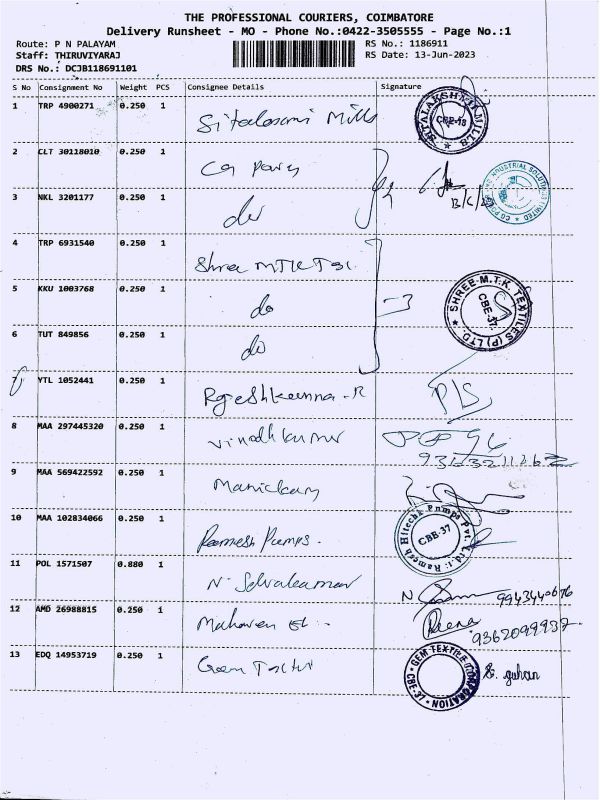 THE PROFESSIONAL COURIERS, COIMBATORE
Delivery Runsheet - MO - Phone No.:0422-3505555 - Page No.:1
Route: P N PALAYAM RS No.: 1186911
Staff: THIRUVIYARAJ RS Date: 13-Jun-2023
DRS No.: DCJB118691101
S No Consignment No Weight PCS Consignee Details Signature
1 TRP 4900271 0.250 1 Sitalaxmi Mills SITALAKSHMI MILLS CBE-18
2 CLT 30118010 0.250 1 INDUSTRIAL SOLUTIONS LIMITED
3 NKL 3201177 0.250 1 do
4 TRP 6931540 0.250 1 Shree MTK Tex.
5 KKU 1003768 0.250 1 do SHREE-M.T.K. TEXTILES (P) LTD. CBE-37.
6 TUT 849856 0.250 1 do
YTL 1052441 0.250 1 Rajeshkanna-R
8 MAA 297445320 0.250 1 Vinodhkumar
9 MAA 569422592 0.250 1 Manickam
10 MAA 102834066 0.250 1 Ramesh Pumps. Ramesh Hitech Pumps Pvt. Ltd. CBE-37
11 POL 1571507 0.880 1 N. Selvakumar N 9943440676
12 AMD 26988815 0.250 1 Reena 9362099937
13 EDQ 14953719 0.250 1 Gem GEM TEXTILE CORPORATION CBE-37 E. guhan